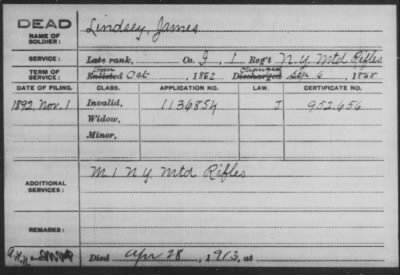 DEAD
NAME OF SOLDIER: Lindsey, James
SERVICE: Late rank, Co. I, 1 Reg't N.Y. Mtd Rifles
TERM OF SERVICE: Enlisted Oct , 1862 Discharged Sep 6 , 1865
DATE OF FILING. CLASS. APPLICATION NO. LAW. CERTIFICATE NO.
1892, Nov. 1 Invalid, 1136854 J 952.656
Widow,
Minor,
ADDITIONAL SERVICES: M 1 N.Y. Mtd Rifles
REMARKS:
Died Apr 28 , 1913, at